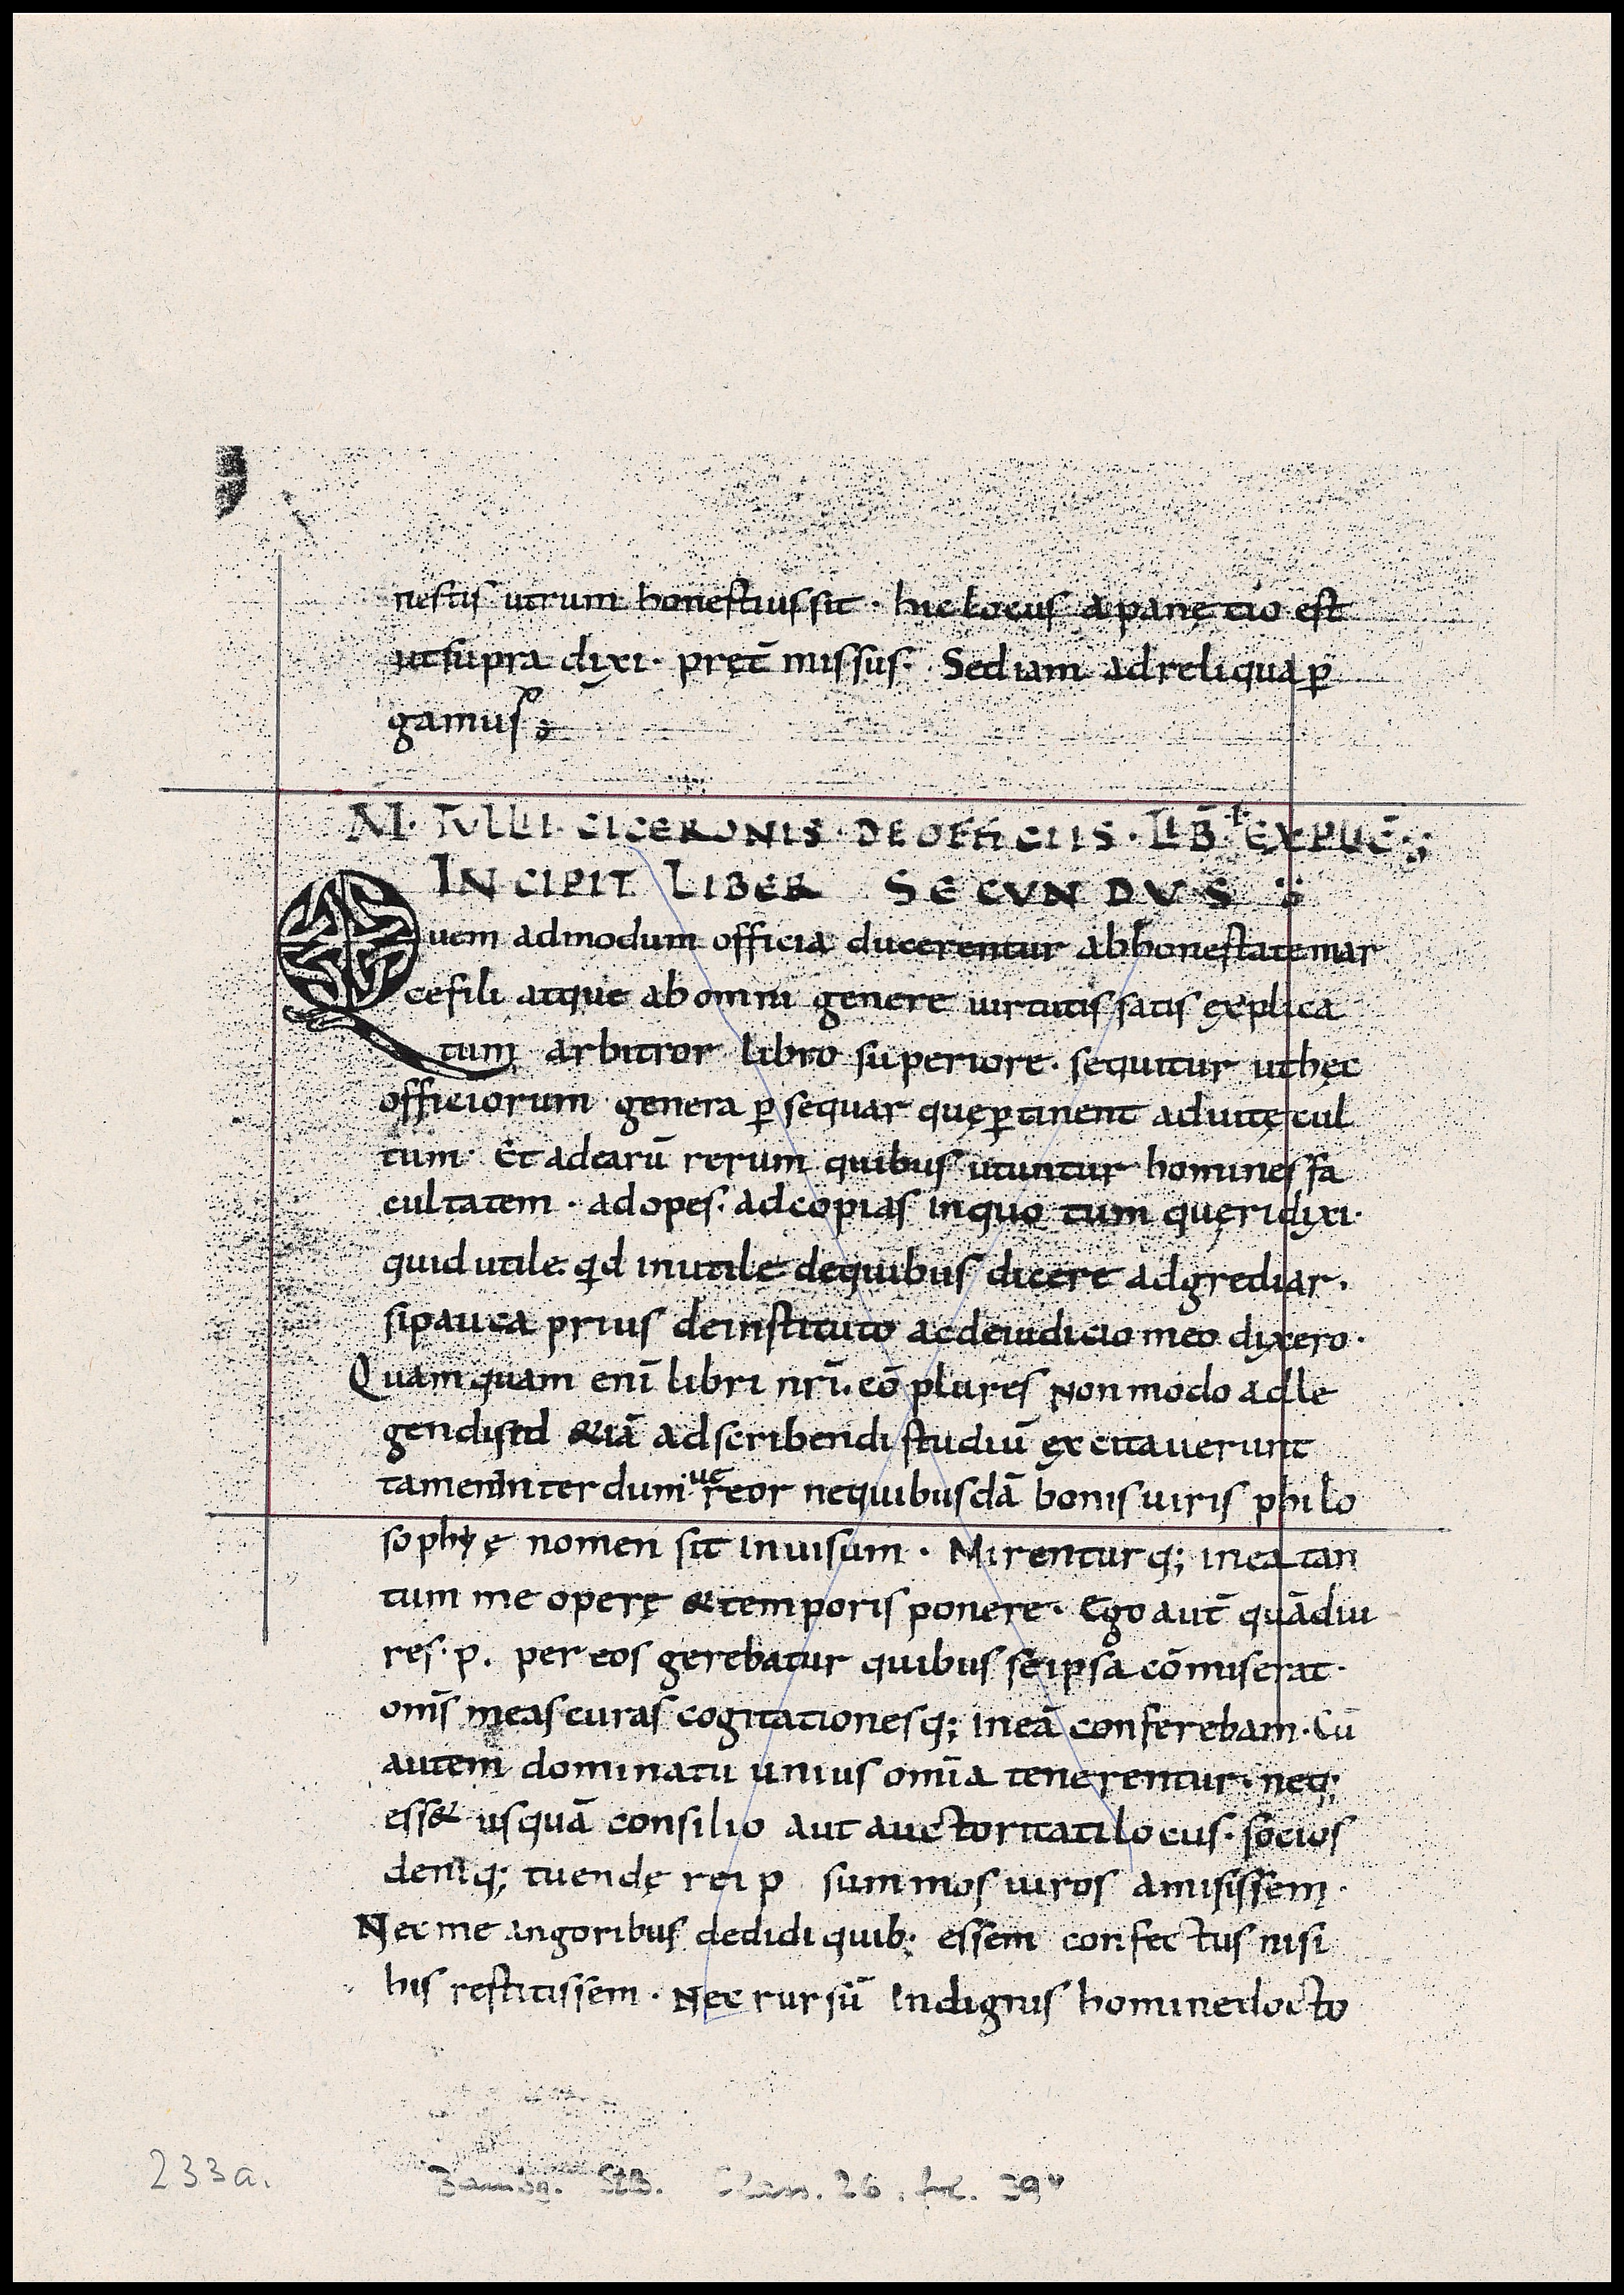 nestis utrum honestius sit · hic locus a panętio est
ut supra dixi · pręt̄ missus · Sed iam ad reliqua ꝑ
gamus;
M · TULLI · CICERONIS · DE OFFICIIS · LIB̄ · I · EXPLIC̄ ;
INCIPIT LIBER SECVNDVS
Quem admodum officia ducerentur ab honestate mar
ce fili atque ab omni genere uirtutis satis explica
tum arbitror libro superiore · sequitur ut hęc
officiorum genera ꝑ sequar quę ꝑtinent ad uitę cul
tum · Et ad earū rerum quibus utuntur homines fa
cultatem · ad opes · ad copias in quo tum quęri dixi ·
quid utile · qͥd inutile de quibus dicere adgrediar ·
si pauca prius de instituto ac de iudicio meo dixero ·
Quam quam enī libri nr̄i · cō plures Non modo ad le
gendi sed &iā ad scribendi studiū excitauerunt
tamen interdum ue reor ne quibusdā bonis uiris philo
sophyę nomen sit inuisum · Mirentur q; in ea tan
tum me operę & temporis ponere · Ego aut̄ quādiu
res · p · per eos gerebatur quibus se ipsa cōmiserat ·
om̄s meas curas cogitationesq; in eā conferebam · Cū
autem dominatu unius om̄ia tenerentur · neq;
ess& usquā consilio aut auctoritati locus · socios
deniq; tuendę rei p summos uiros amisissem ·
Nec me angoribus dedidi quib; essem confectus nisi
his restitissem · Nec rursū Indignus homine docto
233a.
Bambg. StB. Class. 26. fol. 39v